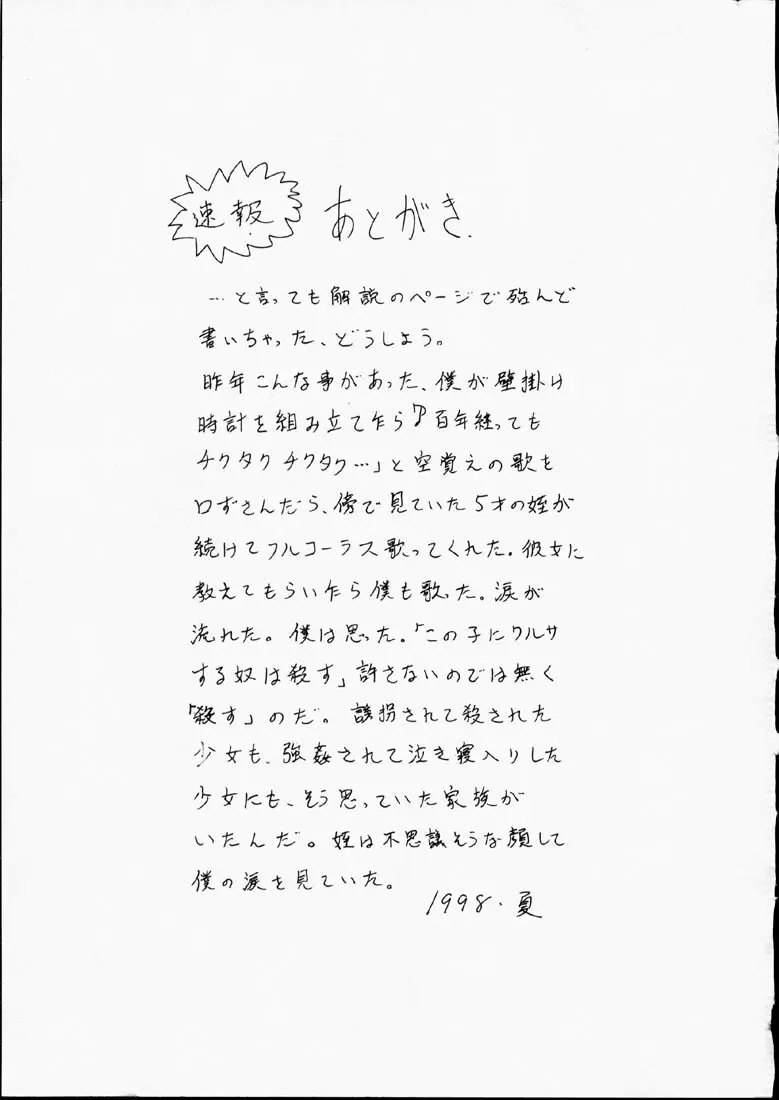 速報 あとがき.
…と言っても解説のページで殆んど
書いちゃった、どうしよう。
昨年こんな事があった、僕が壁掛け
時計を組み立て乍ら「♪百年経っても
チクタクチクタク…」と空覚えの歌を
口ずさんだら、傍で見ていた5才の姪が
続けてフルコーラス歌ってくれた。彼女に
教えてもらい乍ら僕も歌った。涙が
流れた。僕は思った。「この子にワルサ
する奴は殺す」許さないのでは無く
「殺す」のだ。誘拐されて殺された
少女も、強姦されて泣き寝入りした
少女にも、そう思っていた家族が
いたんだ。姪は不思議そうな顔して
僕の涙を見ていた。
1998.夏